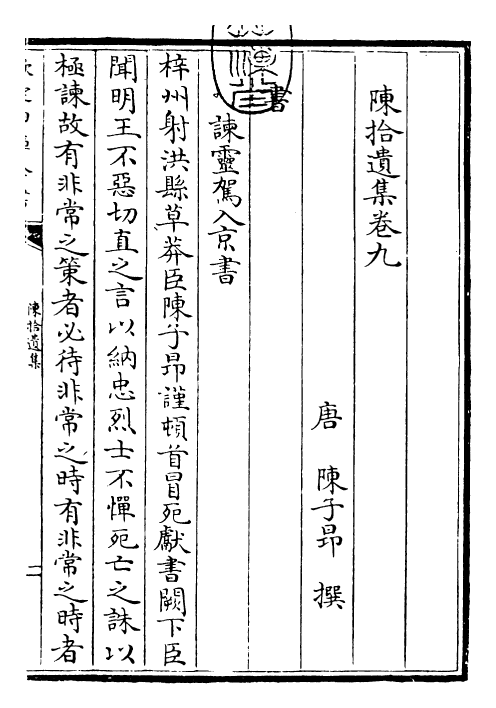 陳拾遺集卷九
唐　陳子昂　撰
書
諫靈駕入京書
梓州射洪縣草莽臣陳子昂謹頓首冒死獻書闕下臣
聞明王不惡切直之言以納忠烈士不憚死亡之誅以
極諫故有非常之策者必待非常之時有非常之時者
陳拾遺集
二